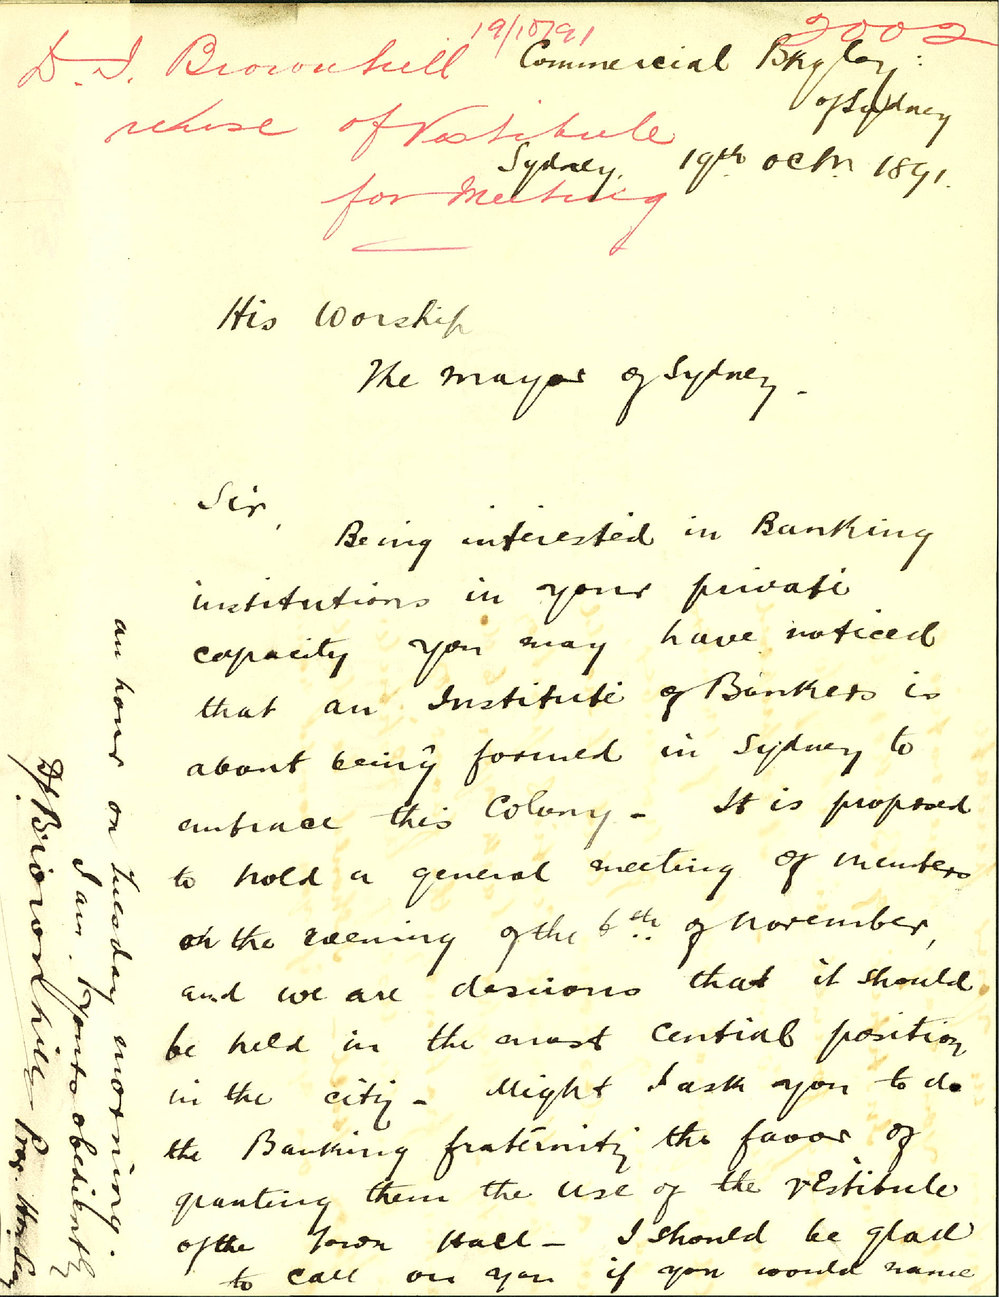 19/10/91
2002
D. I. Brownhill
re use of Vestibule
for Meeting
Commercial Bkg Coy:
of Sydney
Sydney, 19th Octr. 1891.
His Worship
The Mayor of Sydney.
Sir,
Being interested in Banking
institutions in your private
capacity you may have noticed
that an Institute of Bankers is
about being formed in Sydney to
embrace this Colony - It is proposed
to hold a general meeting of members
on the evening of the 6th. of November,
and we are desirous that it should
be held in the most central position
in the city - Might I ask you to do
the Banking fraternity the favor of
granting them the use of the vestibule
of the Town Hall - I should be glad
to call on you if you would name
an hour on Tuesday morning.
I am. Yours obediently
Brownhill